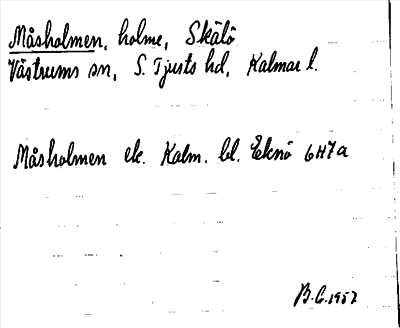 Måsholmen, holme, Skälö
Västrums sn, S. Tjusts hd, Kalmar l.
Måsholmen ek. Kalm. bl. Eknö 6H7a
B.C. 1957